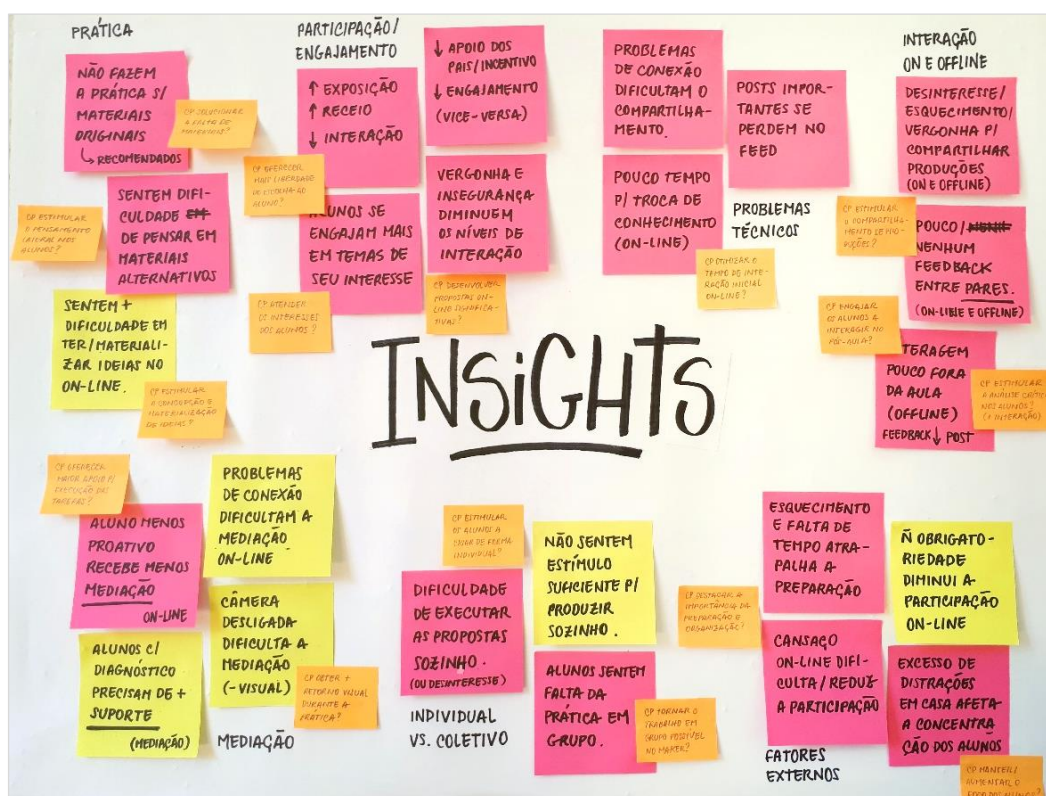 PRÁTICA
NÃO FAZEM
A PRÁTICA S/
MATERIAIS
ORIGINAIS
↳ RECOMENDADOS
CP SOLUCIONAR
A FALTA DE
MATERIAIS?
SENTEM DIFI-
CULDADE EM
DE PENSAR EM
MATERIAIS
ALTERNATIVOS
CP ESTIMULAR
O PENSAMENTO
NOS
ALUNOS?
SENTEM +
DIFICULDADE EM
TER/MATERIALI-
ZAR IDEIAS NO
ON-LINE.
CP ESTIMULAR
A CONCEPÇÃO E
MATERIALIZAÇÃO
DE IDEIAS?
PARTICIPAÇÃO/
ENGAJAMENTO
↑ EXPOSIÇÃO
↑ RECEIO
↓ INTERAÇÃO
CP OFERECER
MAIS LIBERDADE
DE ESCOLHA AO
ALUNO?
ALUNOS SE
ENGAJAM MAIS
EM TEMAS DE
SEU INTERESSE
CP ATENDER
OS INTERESSES
DOS ALUNOS?
↓ APOIO DOS
PAIS/INCENTIVO
↓ ENGAJAMENTO
(VICE-VERSA)
VERGONHA E
INSEGURANÇA
DIMINUEM
OS NÍVEIS DE
INTERAÇÃO
CP DESENVOLVER
PROPOSTAS ON-
LINE SIGNIFICA-
TIVAS?
PROBLEMAS
DE CONEXÃO
DIFICULTAM O
COMPARTILHA-
MENTO.
POSTS IMPOR-
TANTES SE
PERDEM NO
FEED
POUCO TEMPO
P/ TROCA DE
CONHECIMENTO
(ON-LINE)
PROBLEMAS
TÉCNICOS
CP OTIMIZAR O
TEMPO DE INTE-
RAÇÃO INICIAL
ON-LINE?
INTERAÇÃO
ON E OFFLINE
DESINTERESSE/
ESQUECIMENTO/
VERGONHA P/
COMPARTILHAR
PRODUÇÕES
(ON E OFFLINE)
CP ESTIMULAR
O COMPARTILHA-
MENTO DE PRO-
DUÇÕES?
POUCO/NENH
NENHUM
FEEDBACK
ENTRE PARES.
(ON-LINE E OFFLINE)
CP ENGAJAR
OS ALUNOS A
INTERAGIR NO
PÓS-AULA?
TERAGEM
POUCO FORA
DA AULA
(OFFLINE)
FEEDBACK↓ POST
CP ESTIMULAR
A ANÁLISE CRÍTICA
NOS ALUNOS?
(+ INTERAÇÃO)
INSIGHTS
CP OFERECER
MAIOR APOIO P/
EXECUÇÃO DAS
TAREFAS?
ALUNO MENOS
PROATIVO
RECEBE MENOS
MEDIAÇÃO
ON-LINE
PROBLEMAS
DE CONEXÃO
DIFICULTAM A
MEDIAÇÃO
ON-LINE
CÂMERA
DESLIGADA
DIFICULTA A
MEDIAÇÃO
(-VISUAL)
ALUNOS C/
DIAGNÓSTICO
PRECISAM DE +
SUPORTE
(MEDIAÇÃO)
CP OBTER +
RETORNO VISUAL
DURANTE A
PRÁTICA?
MEDIAÇÃO
CP ESTIMULAR
OS ALUNOS A
CRIAR DE FORMA
INDIVIDUAL?
DIFICULDADE
DE EXECUTAR
AS PROPOSTAS
SOZINHO.
(OU DESINTERESSE)
NÃO SENTEM
ESTÍMULO
SUFICIENTE P/
PRODUZIR
SOZINHO.
ALUNOS SENTEM
FALTA DA
PRÁTICA EM
GRUPO.
CP TORNAR O
TRABALHO EM
GRUPO POSSÍVEL
NO MAKER?
INDIVIDUAL
VS. COLETIVO
ESQUECIMENTO
E FALTA DE
TEMPO ATRA-
PALHA A
PREPARAÇÃO
CP DESTACAR A
IMPORTÂNCIA DA
PREPARAÇÃO E
ORGANIZAÇÃO?
Ñ OBRIGATO-
RIEDADE
DIMINUI A
PARTICIPAÇÃO
ON-LINE
CANSAÇO
ON-LINE DIFI-
CULTA/REDUZ
A PARTICIPAÇÃO
EXCESSO DE
DISTRAÇÕES
EM CASA AFETA
A CONCENTRA
ÇÃO DOS ALUNOS
FATORES
EXTERNOS
CP MANTER/
AUMENTAR O
FOCO DOS ALUNOS?